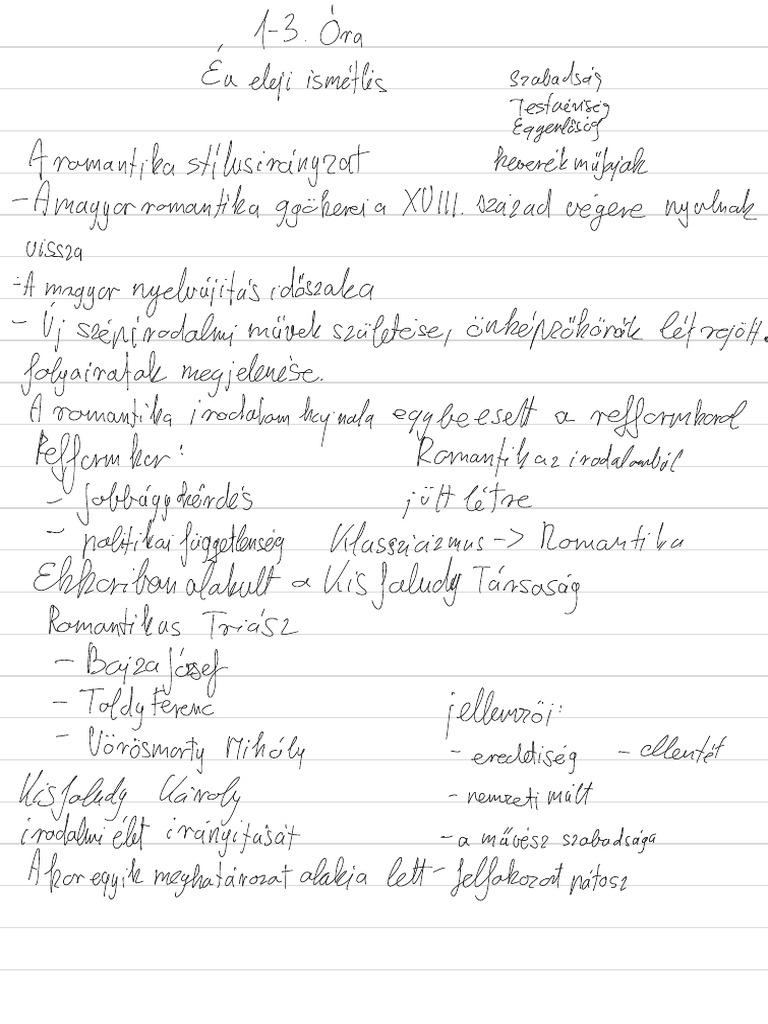 1-3. Óra
Év eleji ismétlés
Szabadság
Testvériség
Egyenlőség
A romantika stílusirányzat
keverék műfajok
- A magyar romantika gyökerei a XVIII. század végére nyulnak
vissza
- A magyar nyelvújitás időszaka
- Új szépirodalmi művek születése, önképzőkörök létrejött.
folyairatok megjelenése.
A romantika irodalom egybeesett a refformkorol
Refformkor:
Romantika az irodalomból
- jobbágykérdés
jött létre
- politikai függetlenség
Klasszicizmus -> Romantika
Ekkoriban alakult a Kisfaludy Társaság
Romantikus Triász
- Bajza József
- Toldy Ferenc
jellemzői:
- Vörösmarty Mihály
- eredetiség - ellentét
Kisfaludy Károly
- nemzeti múlt
irodalmi élet irányitását
- a művész szabadsága
A kor egyik meghatározat alakja lett
- felfokozot pátosz